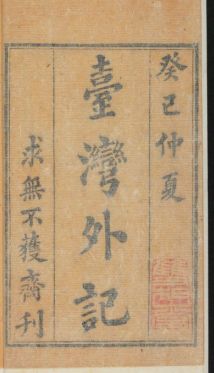 癸巳仲夏
臺灣外記
求無不獲齋刊